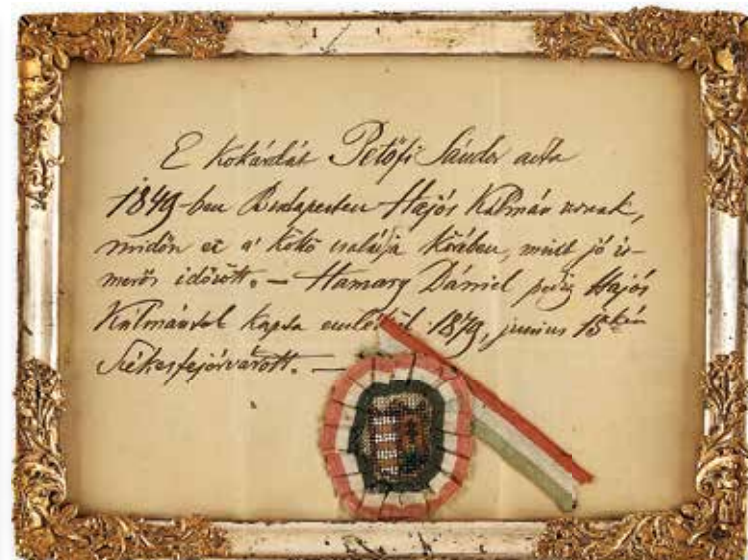 E kokárdát Petőfi Sándor adta
1849-ben Budapesten Hajós Kálmán urnak,
midőn ez a' költő családja körében, mint jó is-
merős időzött. – Hamary Dániel pedig Hajós
Kálmántól kapta emlékül 1879, junius 15kén
Székesfejérvárott. –